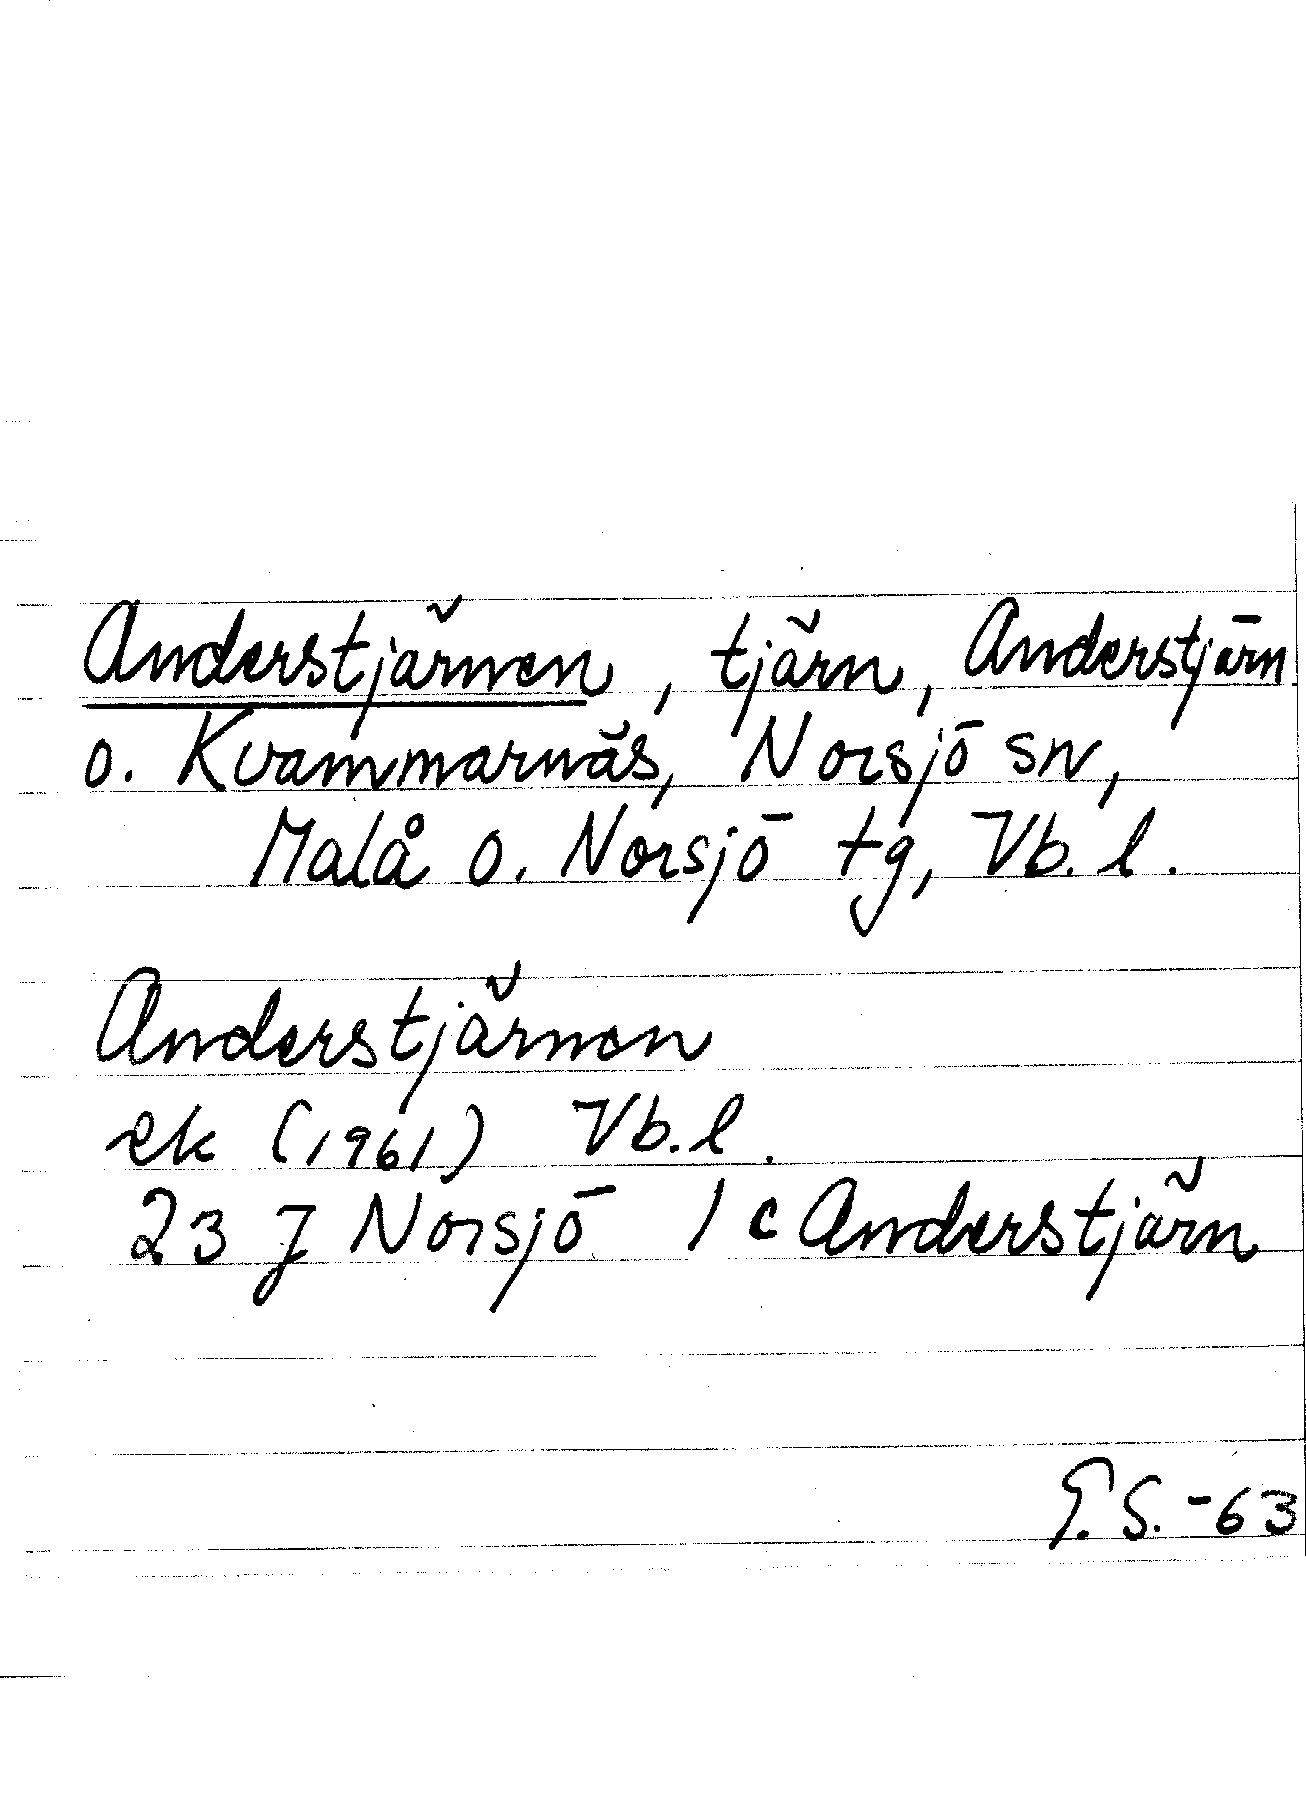 Anderstjärnen, tjärn, Anderstjärn
o. Kvammarnäs, Norsjö sn,
Malå o. Norsjö tg, Vb. l.
Anderstjärnen
ek (1961) Vb. l.
23 J Norsjö 1 c Anderstjärn
G. S. -63